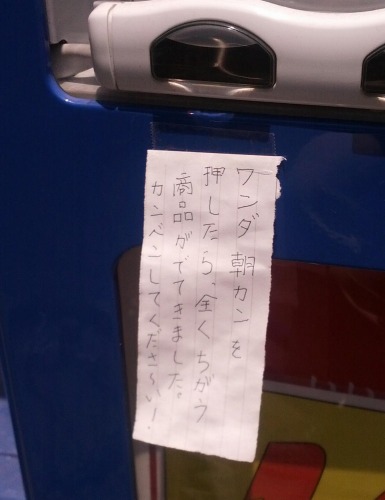 ワンダ朝カンを
押したら、全くちがう
商品がでてきました。
カンベンしてくださ〜い！